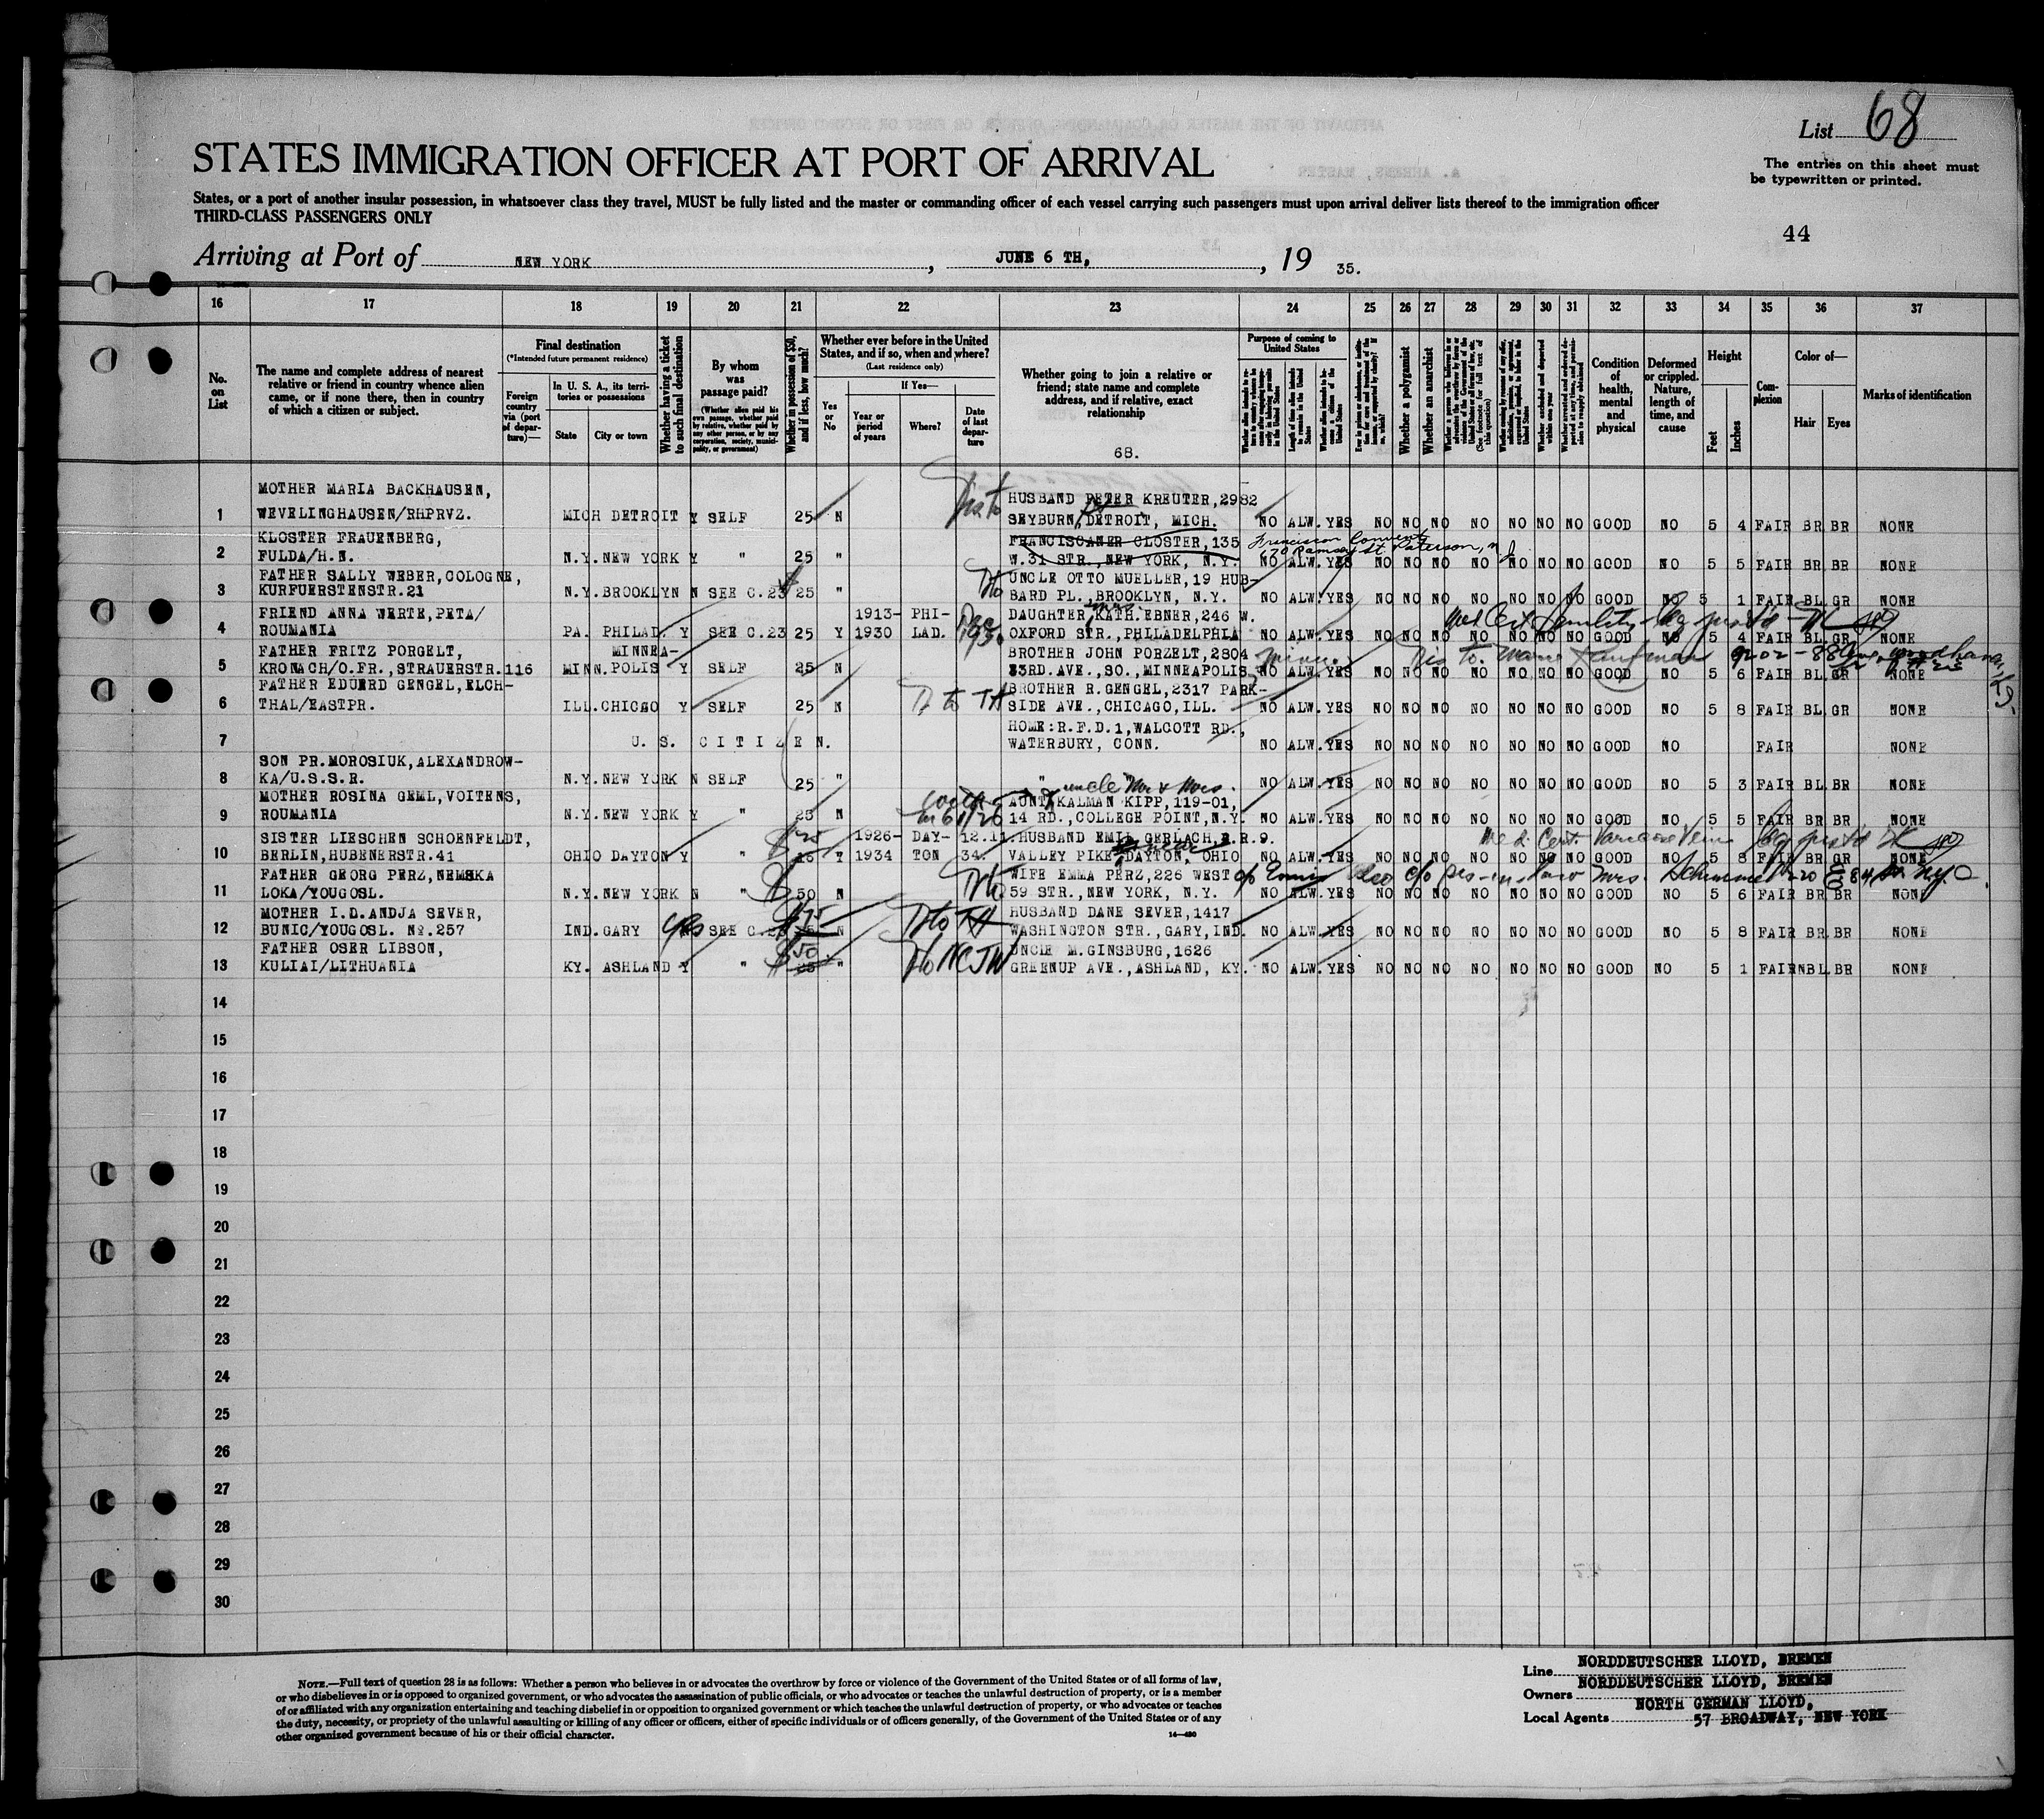 List 68
STATES IMMIGRATION OFFICER AT PORT OF ARRIVAL
The entries on this sheet must
be typewritten or printed.
States, or a port of another insular possession, in whatsoever class they travel, MUST be fully listed and the master or commanding officer of each vessel carrying such passengers must upon arrival deliver lists thereof to the immigration officer
THIRD-CLASS PASSENGERS ONLY
44
Arriving at Port of NEW YORK, JUNE 6 TH, 19 35.
16 17 18 19 20 21 22 23 24 25 26 27 28 29 30 31 32 33 34 35 36 37
No. on List
The name and complete address of nearest relative or friend in country whence alien came, or if none there, then in country of which a citizen or subject.
Final destination
(*Intended future permanent residence)
Foreign country via (port of departure)—
In U. S. A., its territories or possessions
State
City or town
Whether having a ticket to such final destination
By whom was passage paid?
(Whether alien paid his own passage, whether paid by relative, whether paid by any other person, or by any corporation, society, municipality, or government)
Whether in possession of $50, and if less, how much?
Whether ever before in the United States, and if so, when and where?
(Last residence only)
Yes or No
If Yes—
Year or period of years
Where?
Date of last departure
Whether going to join a relative or friend; state name and complete address, and if relative, exact relationship
68.
Purpose of coming to United States
Whether a polygamist
Whether an anarchist
Condition of health, mental and physical
Deformed or crippled. Nature, length of time, and cause
Height
Feet
Inches
Complexion
Color of—
Hair
Eyes
Marks of identification
MOTHER MARIA BACKHAUSEN, HUSBAND PETER KREUTER,2982
1 WEVELINGHAUSEN/RHPRVZ. MICH DETROIT Y SELF 25 N SEYBURN, DETROIT, MICH. NO ALW. YES NO NO NO NO NO NO NO GOOD NO 5 4 FAIR BR BR NONE
KLOSTER FRAUENBERG, FRANCISCANER CLOSTER,135 Franciscan Convent
2 FULDA/H.N. N.Y. NEW YORK Y " 25 " W.31 STR., NEW YORK, N.Y. 170 Ramsey St Paterson, NJ NO ALW. YES NO NO NO NO NO NO NO GOOD NO 5 5 FAIR BR BR NONE
FATHER SALLY WEBER,COLOGNE, UNCLE OTTO MUELLER,19 HUB-
3 KURFUERSTENSTR.21 N.Y. BROOKLYN N SEE C.23 25 " BARD PL., BROOKLYN, N.Y. NO ALW. YES NO NO NO NO NO NO NO GOOD NO 5 1 FAIR BL GR NONE
FRIEND ANNA WERTE,PETA/ 1913- PHI- Dec DAUGHTER, Mrs. KATH.EBNER,246 W.
4 ROUMANIA PA. PHILAD. Y SEE C.23 25 Y 1930 LAD. 1930 OXFORD STR.,PHILADELPHIA NO ALW. YES NO NO NO NO NO NO NO GOOD NO 5 4 FAIR BL GR NONE
FATHER FRITZ PORGELT, MINNEA- BROTHER JOHN PORZELT,2804 Minn.
5 KRONACH/O.FR.,STRAUERSTR.116 MINN. POLIS Y SELF 25 N 33RD.AVE.,SO.,MINNEAPOLIS NO ALW. YES NO NO NO NO NO NO NO GOOD NO 5 6 FAIR BL GR NONE
FATHER EDUERD GENGEL,ELCH- BROTHER R.GENGEL,2317 PARK-
6 THAL/EASTPR. ILL. CHICAGO Y SELF 25 N SIDE AVE.,CHICAGO,ILL. NO ALW. YES NO NO NO NO NO NO NO GOOD NO 5 8 FAIR BL GR NONE
HOME:R.F.D.1,WALCOTT RD.,
7 U. S. CITIZEN. WATERBURY, CONN. NO ALW. YES NO NO NO NO NO NO NO GOOD NO FAIR NONE
SON PR.MOROSIUK,ALEXANDROW-
8 KA/U.S.S.R. N.Y. NEW YORK N SELF 25 " " NO ALW. YES NO NO NO NO NO NO NO GOOD NO 5 3 FAIR BL BR NONE
MOTHER ROSINA GEML,VOITENS, AUNT & uncle Mr. & Mrs. KALMAN KIPP,119-01,
9 ROUMANIA N.Y. NEW YORK Y " 25 N 14 RD.,COLLEGE POINT,N.Y. NO ALW. YES NO NO NO NO NO NO NO GOOD NO 5 5 FAIR BR BR NONE
SISTER LIESCHEN SCHOENFELDT, 1926- DAY- 12.11. HUSBAND EMIL GERLACH,R.R.9. Med. Cert. Varicose Veins
10 BERLIN,HUBENERSTR.41 OHIO DAYTON Y " Y 1934 TON 34. VALLEY PIKE, DAYTON, OHIO NO ALW. YES NO NO NO NO NO NO NO GOOD NO 5 8 FAIR BR GR NONE
FATHER GEORG PERZ,NEMSKA WIFE EMMA PERZ,226 WEST
11 LOKA/YOUGOSL. N.Y. NEW YORK N " 50 N 59 STR., NEW YORK, N.Y. NO ALW. YES NO NO NO NO NO NO NO GOOD NO 5 6 FAIR BR BR NONE
MOTHER I.D.ANDJA SEVER, HUSBAND DANE SEVER,1417
12 BUNIC/YOUGOSL. No.257 IND. GARY yes SEE C.23 N WASHINGTON STR.,GARY,IND. NO ALW. YES NO NO NO NO NO NO NO GOOD NO 5 8 FAIR BR BR NONE
FATHER OSER LIBSON, $50. UNCLE M.GINSBURG,1626
13 KULIAI/LITHUANIA KY. ASHLAND Y " 25 " GREENUP AVE.,ASHLAND, KY. NO ALW. YES NO NO NO NO NO NO NO GOOD NO 5 1 FAIR NBL BR NONE
14
15
16
17
18
19
20
21
22
23
24
25
26
27
28
29
30
NOTE.—Full text of question 28 is as follows: Whether a person who believes in or advocates the overthrow by force or violence of the Government of the United States or of all forms of law,
or who disbelieves in or is opposed to organized government, or who advocates the assassination of public officials, or who advocates or teaches the unlawful destruction of property, or is a member
of or affiliated with any organization entertaining and teaching disbelief in or opposition to organized government or which teaches the unlawful destruction of property, or who advocates or teaches
the duty, necessity, or propriety of the unlawful assaulting or killing of any officer or officers, either of specific individuals or of officers generally, of the Government of the United States or of any
other organized government because of his or their official character.
14—430
Line NORDDEUTSCHER LLOYD, BREMEN
Owners NORDDEUTSCHER LLOYD, BREMEN
NORTH GERMAN LLOYD,
Local Agents 57 BROADWAY, NEW YORK